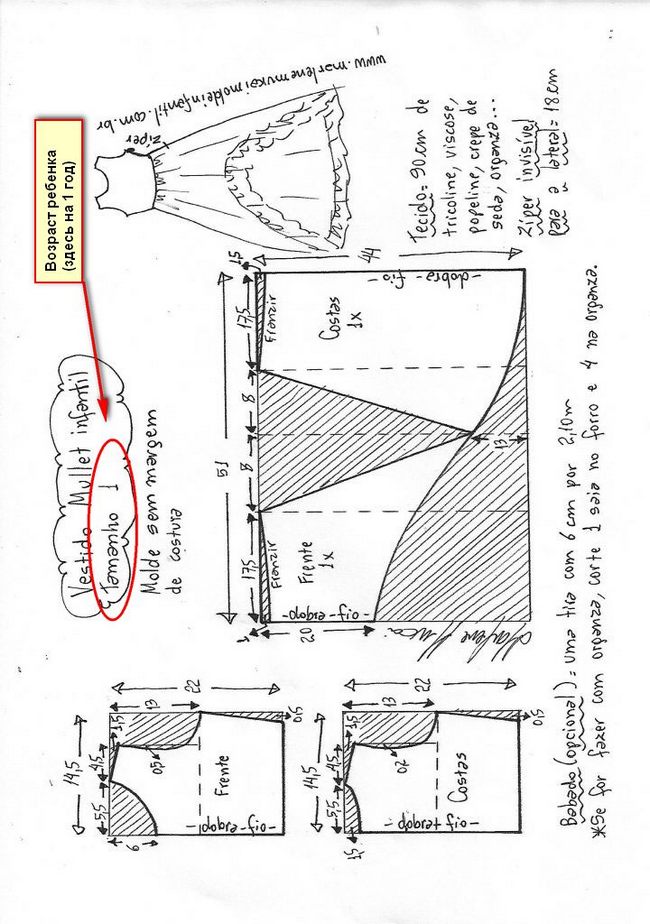 Возраст ребенка
(здесь на 1 год)
Vestido Mullet infantil
tamanho 1
Molde sem margem
de costura
Zíper
www.marlenemukaimoldeinfantil.com.br
14,5
5,5
4,5
1,5
6
13
22
05
Frente
-dobra-fio-
0,5
14,5
5,5
4,5
1,5
1,5
13
22
02
Costas
-dobra-fio-
0,5
51
17,5
8
8
17,5
1
1,5
Franzir
Franzir
Frente
1x
Costas
1x
20
44
13
-dobra-fio-
-dobra-fio-
Marlene Mukai
Tecido= 90cm de
tricoline, viscose,
popeline, crepe de
seda, organza...
Zíper invisível
para a lateral= 18cm
Babado (opcional)= uma tira com 6 cm por 2,10m
*Se for fazer com organza, corte 1 saia no forro e 4 na organza.